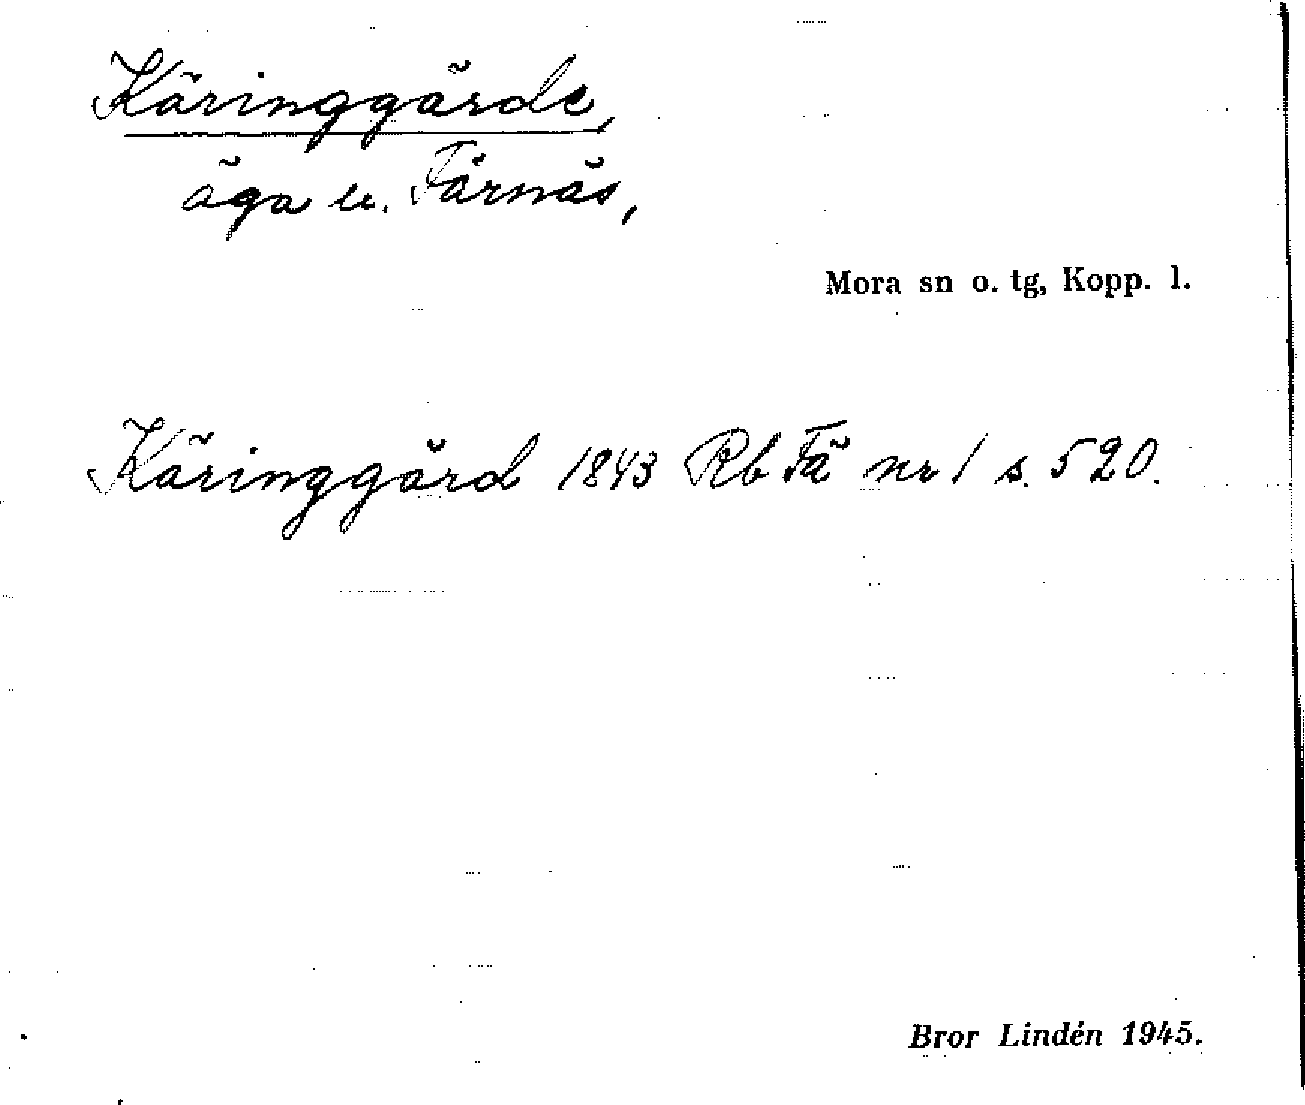 Käringgärde,
äga u. Färnäs,
Mora sn o. tg, Kopp. l.
Käringgärd 1843 Rb Fä nr 1 s. 520.
Bror Lindén 1945.